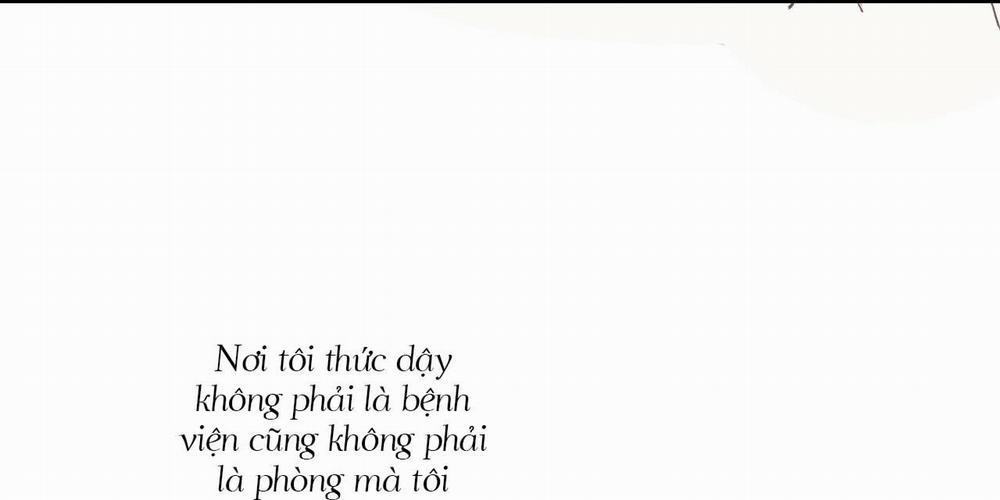 Nơi tôi thức dậy
không phải là bệnh
viện cũng không phải
là phòng mà tôi